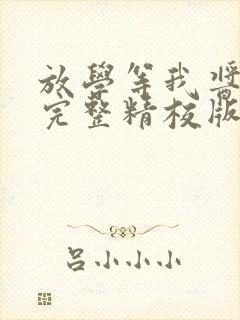 放學等我酱
完整精校版
吕小小小